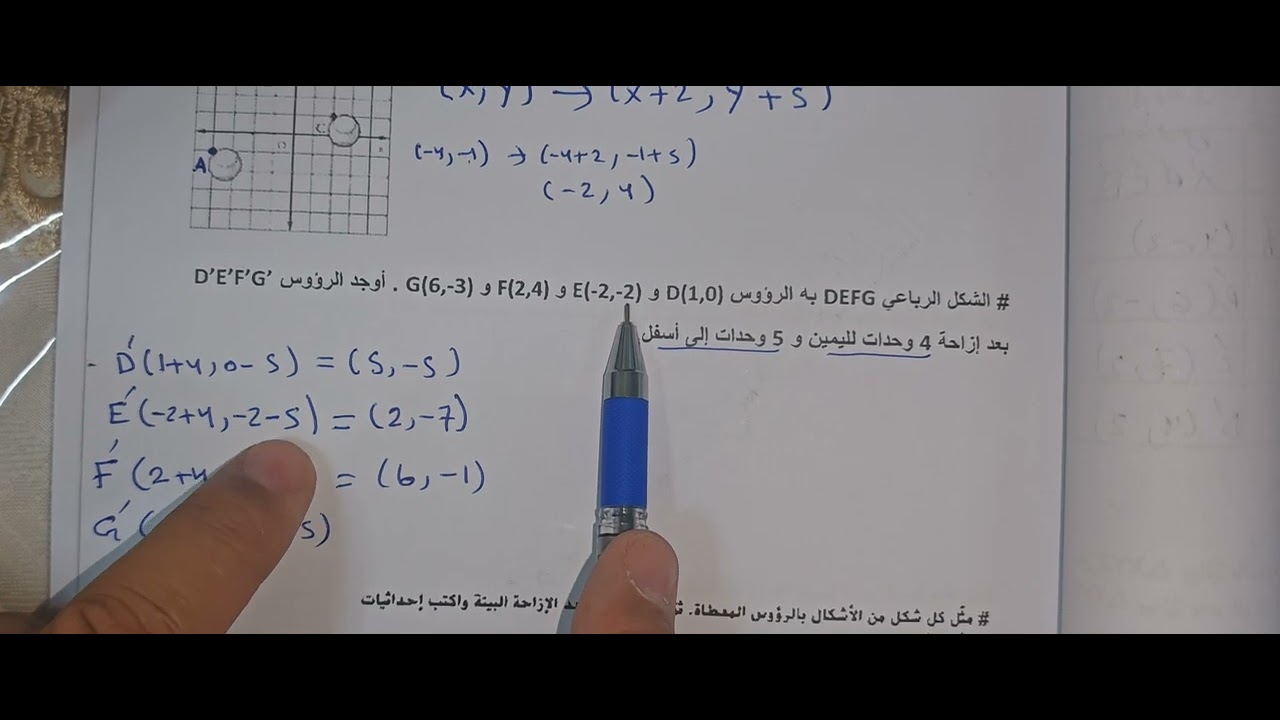 (x, y) → (x+2, y+5)
(-4,-1) → (-4+2, -1+5)
(-2, 4)
C
A
# الشكل الرباعي DEFG به الرؤوس D(1,0) و E(-2,-2) و F(2,4) و G(6,-3) . أوجد الرؤوس D'E'F'G'
بعد إزاحة 4 وحدات لليمين و 5 وحدات إلى أسفل
- D'(1+4, 0-5) = (5, -5)
E'(-2+4, -2-5) = (2, -7)
F'(2+4 = (6, -1)
G'( 5)
# مثّل كل شكل من الأشكال بالرؤوس المعطاة. الإزاحة البينة واكتب إحداثيات